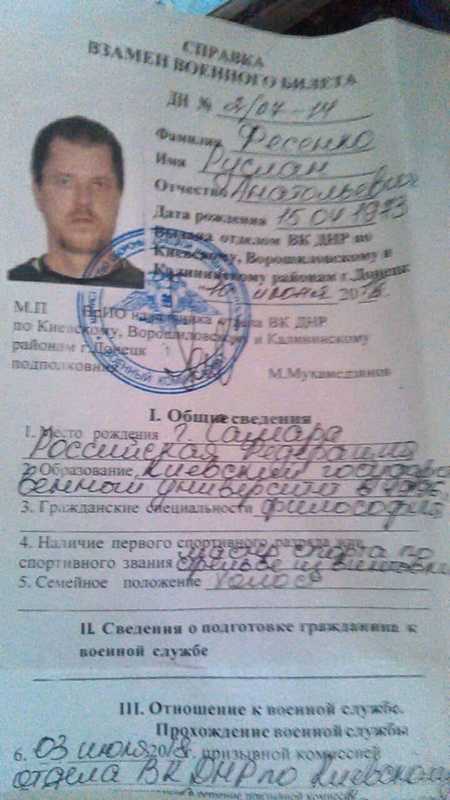 СПРАВКА
ВЗАМЕН ВОЕННОГО БИЛЕТА
ДН № 2/07-14
Фамилия Фесенко
Имя Руслан
Отчество Анатольевич
Дата рождения 15 04 1973
Выдана отделом ВК ДНР по
Киевскому, Ворошиловскому и
Калининскому районам г.Донецк
июня 201
М.П ВрИО начальника отдела ВК ДНР
по Киевскому, Ворошиловскому и Калининскому
районам г.Донецк
подполковник М.Мухамедзянов
I. Общие сведения
1. Место рождения г. Самара
Российская Федерация
2. Образование Киевский государст
венный университет в
3. Гражданские специальности философия
4. Наличие первого спортивного разряда или
мастер спорта по
спортивного звания стрельбе из винтовки
5. Семейное положение холост
II. Сведения о подготовке гражданина к
военной службе
III. Отношение к военной службе.
Прохождение военной службы
6. 03 июля 201 г. призывной комиссией
отдела ВК ДНР по Киевскому